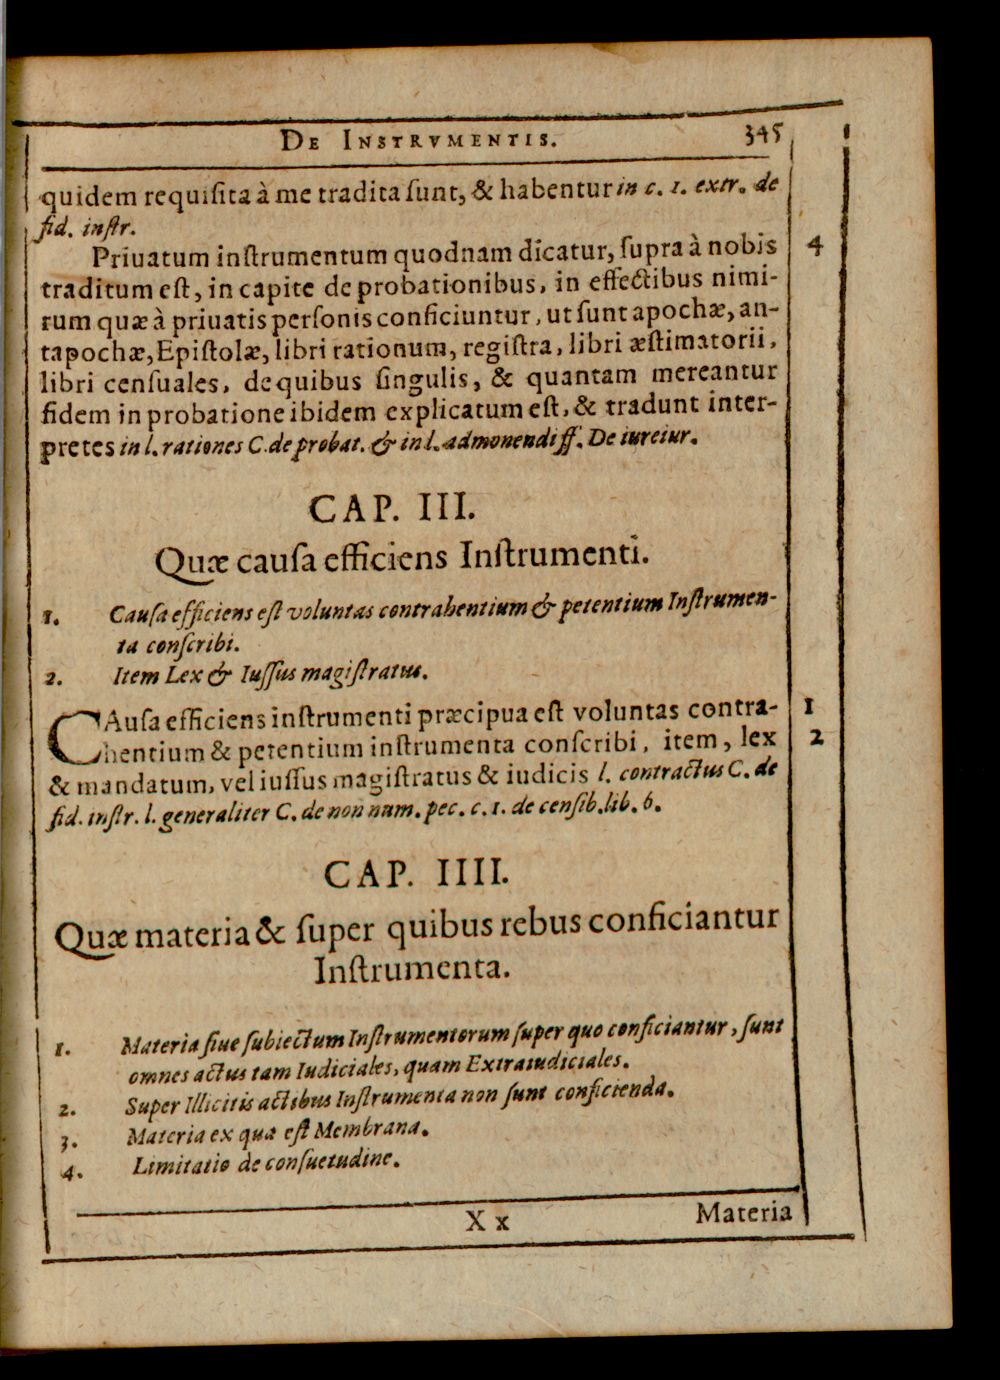 DE INSTRVMENTIS. 345
quidem requiſita à me tradita ſunt, & habentur in c. 1. extr. de
fid. inſtr.
Priuatum inſtrumentum quodnam dicatur, ſupra à nobis 4
traditum eſt, in capite de probationibus, in effectibus nimi-
rum quæ à priuatis perſonis conficiuntur, ut ſunt apochæ, an-
tapochæ, Epiſtolæ, libri rationum, regiſtra, libri æſtimatorii,
libri cenſuales, de quibus ſingulis, & quantam mereantur
fidem in probatione ibidem explicatum eſt, & tradunt inter-
pretes in l. rationes C. de probat. & in l. admonendi ff. De iureiur.
CAP. III.
Quæ cauſa efficiens Inſtrumenti.
1. Cauſa efficiens eſt voluntas contrahentium & petentium Inſtrumen-
ta conſcribi.
2. Item Lex & Iuſſus magiſtratus.
CAuſa efficiens inſtrumenti præcipua eſt voluntas contra- 1
hentium & petentium inſtrumenta conſcribi, item, lex 2
& mandatum, vel iuſſus magiſtratus & iudicis l. contractus C. de
fid. inſtr. l. generaliter C. de non num. pec. c. 1. de cenſib. lib. 6.
CAP. IIII.
Quæ materia & ſuper quibus rebus conficiantur
Inſtrumenta.
1. Materia ſiue ſubiectum Inſtrumentorum ſuper quo conficiantur, ſunt
omnes actus tam Iudiciales, quam Extraiudiciales.
2. Super Illicitis actibus Inſtrumenta non ſunt conficienda.
3. Materia ex qua eſt Membrana.
4. Limitatio de conſuetudine.
X x Materia